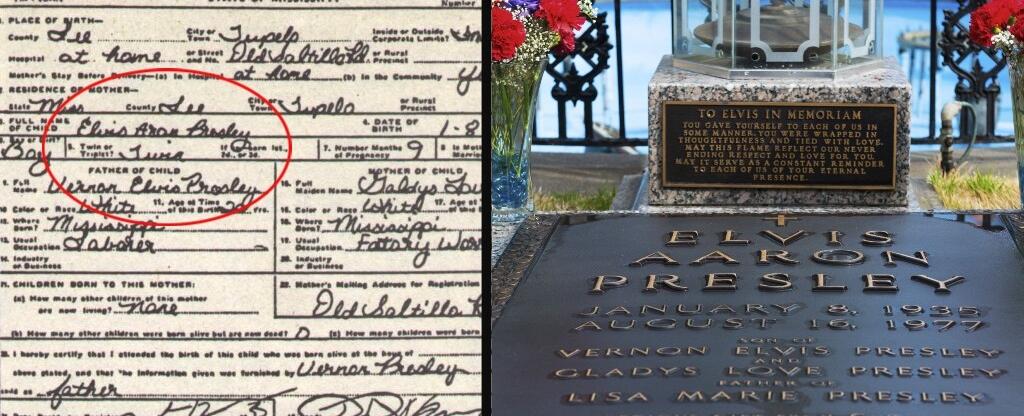 STATE OF MISSISSIPPI
Number
1. PLACE OF BIRTH—
County Lee City or Town Tupelo Inside or Outside Corporate Limits?
Hospital at home or Street and No. Old Saltillo Rd. or Rural Precinct
Mother's Stay Before Delivery—(a) In Hospital at home (b) In the Community
2. RESIDENCE OF MOTHER—
State Miss County Lee City or Town Tupelo or Rural Precinct
3. FULL NAME OF CHILD Elvis Aron Presley 4. DATE OF BIRTH 1-8
Boy 5. Twin or Triplet? Twin If born 1st, 2d, or 3d. 7. Number Months of Pregnancy 9 8. Is Mother
FATHER OF CHILD MOTHER OF CHILD
9. Full Name Vernon Elvis Presley 15. Full Maiden Name Gladys
10. Color or Race White 11. Age at Time of this Birth Yrs. 16. Color or Race White 17. Age at
12. Where Born? Mississippi Where Born? Mississippi
13. Usual Occupation Laborer 19. Usual Occupation Factory
14. Industry or Business 20. Industry or Business
21. CHILDREN BORN TO THIS MOTHER: 22. Mother's Mailing Address for Registration
(a) How many other children of this mother are now living? none Old Saltillo
(b) How many other children were born alive but are now dead? 0 (c) How many children were born
I hereby certify that I attended the birth of this child who was born alive at the hour of
above stated, and that the information given was furnished by Vernon Presley
as father
TO ELVIS IN MEMORIAM
YOU GAVE YOURSELF TO EACH OF US IN
SOME MANNER. YOU WERE WRAPPED IN
THOUGHTFULNESS AND TIED WITH LOVE.
MAY THIS FLAME REFLECT OUR NEVER
ENDING RESPECT AND LOVE FOR YOU.
MAY IT SERVE AS A CONSTANT REMINDER
TO EACH OF US OF YOUR ETERNAL
PRESENCE.
ELVIS
AARON
PRESLEY
JANUARY 8, 1935
AUGUST 16, 1977
SON OF
VERNON ELVIS PRESLEY
AND
GLADYS LOVE PRESLEY
FATHER OF
LISA MARIE PRESLEY